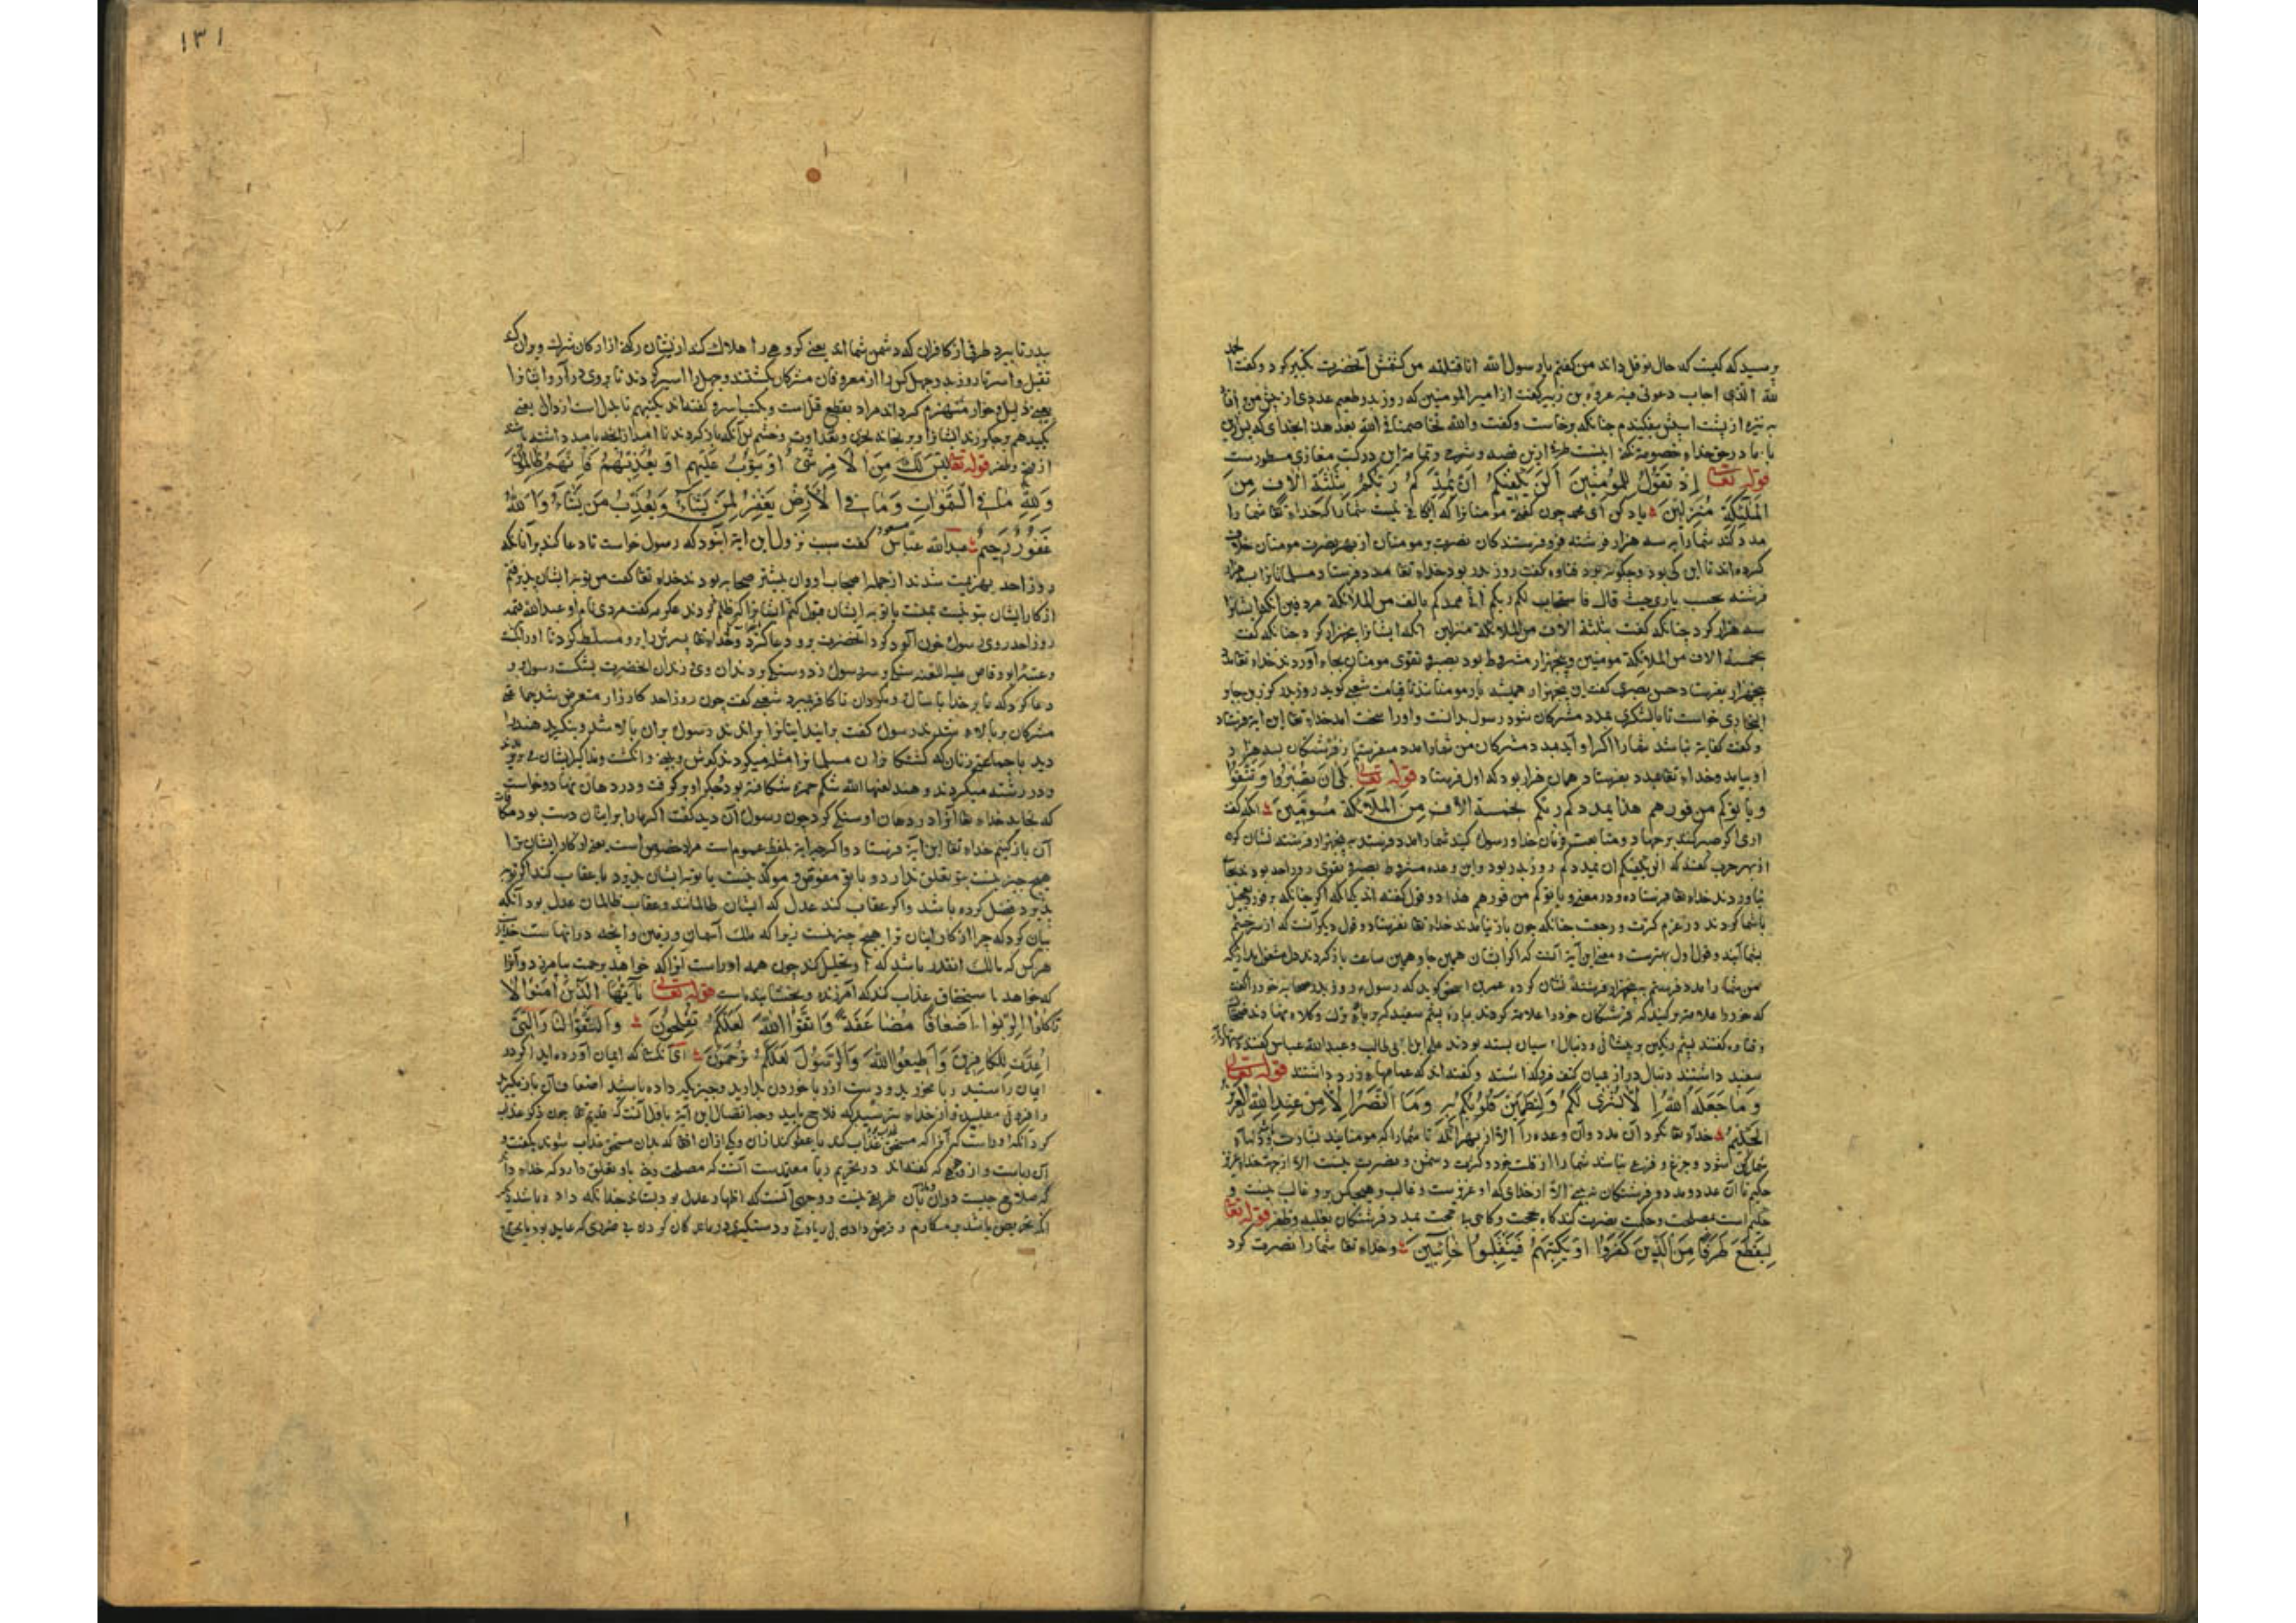 پرسید که کیست که حال نوفل داند من گفتم یا رسول الله انا قتلته من کشتمش آنحضرت تکبیر کرد و گفت الحمد
لله الذی اجاب دعوتی فیه عروة بن زبیر گفت از امیرالمومنین که روز بدر طعیم عدی را
به نیزه از پشت اسبش بیفکندم چنانکه برخاست و گفت والله لا تخاصمنا فی الله بعد هذا
با ما در حق خداء خصومة نکند اینست طرفی ازین قصه و شرح و تمامتر این در کتب مغازی مسطورست
قوله تعالی إذ تقول للمؤمنین ألن یکفیکم أن یمدکم ربکم بثلثة آلاف من
الملئکة منزلین یاد کن ای محمد چون گفتی مومنانرا که آیا کافی نیست شما را که خداء تعا شما را
مدد کند شما را به سه هزار فرشته فرو فرستندگان نصرت بر مومنان از بهر نصرت مومنان خلاف
کرده اند تا این کی بود و چگونه بود قتاوه گفت روز بدر بود خداء تعا مدد فرستاد مسلمانانرا به هزار
فرشته بحسب یاری حیث قال فاستجاب لکم ربکم انی ممدکم بالف من الملائکة مردفین آنگه ایشانرا
سه هزار کرد چنانکه گفت بثلثة آلاف من الملائکة منزلین آنگه ایشانرا پنجهزار کرد چنانکه گفت
بخمسة الاف من الملائکة مسومین و پنجهزار مشروط بود بصبر و تقوی مومنان بجاء آوردند خداء تعا
پنجهزار بفرستاد حسن بصری گفت این پنجهزار همیشه یار مومنانند تا قیامت شعبی گوید روز بدر کرز بن جابر
المحاربی خواست تا با لشکری بمدد مشرکان شود رسول بدانست و او را سخت آمد خداء تعا این ایة فرستاد
و گفت کفایة نباشد شما را اگر او آید بمدد مشرکان من شما را مدد میفرستم از فرشتگان بسه هزار
او نیامد و خداء تعا مدد بفرستاد همان هزار بود که اول فرستاد قوله تعالی بلی إن تصبروا وتتقوا
ویأتوکم من فورهم هذا یمددکم ربکم بخمسة آلاف من الملآئکة مسومین آنگه گفت
آری اگر صبر کنند بر جهاد و متابعت فرمان خدا و رسول کنند شما را مدد فرستد به پنجهزار فرشته نشان کرده
از بهر حرب گفتند که الن یکفیکم ان یمدکم روز بدر بود و این وعده مشروط بصبر و تقوی روز احد بود
نیاوردند خداء تعا نفرستاد و در معنی و یاتوکم من فورهم هذا دو قول گفته اند یکی آنکه اگر چنانکه بر فور و تعجیل
باشما گردند در عزم کرت و رجعت چنانکه چون باز نیامدند خداء تعا نفرستاد و قول دیگر آنست که از سر خشم
بشما آیند و قول اول بهترست و معنی این آیة آنست که اگر ایشان همین جا و همین ساعت باز گردند دل مشغول مدارید که
من شما را مدد فرستم به پنجهزار فرشته نشان کرده عمیر بن اسحق گوید که رسول روز بدر صحابه خود را گفت
که خود را علامت بر کنید که فرشتگان خود را علامت کردند بپاره پشم سفید که بر
و قتاوه گفتند پشم رنگین بر پیشانی و دنبال اسبان بسته بودند علی بن ابی طالب و عبدالله عباس گفتند
سفید داشتند دنبال در از میان کتف فروگذاشته و گفته اند که عمامهای زرد داشتند قوله تعالی
وما جعله الله إلا بشری لکم ولتطمئن قلوبکم به وما النصر إلا من عند الله العزیز
الحکیم خداء تعا نکرد آن مدد و آن وعده را الا از بهر آنکه تا شما را که مومنانید بشارت بود و دلهاء
شما ساکن شود و جزع و فزع نباشد شما را از قلت خود و کثرت دشمن و نصرت نیست الا از جهت خداء عزیز
حکیم تا آن عدد و مدد و فرشتگان نه بینی الا از خدای که او عزیزست و غالب و هیچکس برو غالب نیست و
حکیم است بمصلحت و حکمت نصرت کند گاه بحجت و گاهی نه بحجت بمدد فرشتگان بغلبه و ظفر قوله تعا
لیقطع طرفا من الذین کفروا أو یکبتهم فینقلبوا خائبین و خداء تعا شما را نصرت کرد
۱۳۱
ببدر تا ببرد طرفی از کافران که دشمن شما اند یعنی گروهی را هلاک کند از ایشان رکنی از ارکان شرک ویران کند
بقتل و اسر تا روز بدر چهل کس را از معروفان مشرکان بکشتند و چهل را اسیر کردند تا بروی در آرد ایشانرا
یعنی ذلیل و خوار منهزم گرداند مراد بقطع قتل است و کبت اسر و گفته اند یکبتهم تا بدل است از دال یعنی
یکبدهم و جگر زند ایشانرا و برنجاند بحزن و بعداوت و خشم بر آنکه باز گردند نا امید از آنچه بامید داشتند
از فتح و ظفر قوله تعا لیس لک من الأمر شیء أو یتوب علیهم أو یعذبهم فإنهم ظالمون
ولله ما فی السموات وما فی الأرض یغفر لمن یشاء ویعذب من یشاء والله
غفور رحیم عبدالله عباس گفت سبب نزول این ایة آنبود که رسول خواست تا دعا کند بر آنانکه
روز احد بهزیمت شدند از جمله اصحاب او و آن بیشتر صحابه بودند خداء تعا گفت من توبه ایشان پذیرفتم
از کار ایشان بتو نیست بمنست یا توبه ایشان قبول کنم ایشانرا که ظلم کردند عکرمه گفت مردی نام او عبدالله قمئه
روز احد روی رسول خون آلود کرد آنحضرت برو دعا کرد و خداء تعا برو مسلط کرد تا او را بکشت
و عتبة ابو وقاص علیه اللعنة سنگی بر سر رسول زد و سنگی بر دندان وی و دندان آنحضرت بشکست رسول برو
دعا کرد که تا برخدا یا سال بگردان تا کافر بمیرد شعبی گفت چون روز احد کارزار متعرض شد جماعتی
مشرکان بر بالاء شدند رسول گفت برانید ایشانرا براندند رسول بران بالا شد و بنگرید هند را
دید با جماعتی زنان که کشتگان مسلمانانرا مثله میکردند گوش و بینی و انگشت
و در رشته میکردند و هند لعنها الله شکم حمزه شکافته بود و جگر او برگرفت و در دهان نهاد و خواست
که بخاید خداء تعا آنرا در دهان او سنگی کرد چون رسول آن دید گفت اگر ما را بر ایشان دست بود مکافات
آن باز کنیم خداء تعا این آیة فرستاد و اگر چه آیة بلفظ عموم است مراد خصوص است یعنی از کار ایشان ترا
هیچ چیز نیست بتو تعلق ندارد و یا بتو مفوض و موکد نیست یا توبه ایشان پذیرد یا عقاب کند اگر توبه
پذیرد فضل کرده باشد و اگر عقاب کند عدل که ایشان ظالمانند و عقاب ظالمان عدل بود آنگه
بیان کرد که چرا از کار ایشان ترا هیچ چیز نیست زیرا که ملک آسمان و زمین و آنچه در آنهاست خدایرا
هر کس که مالک آنقدر باشد که چون همه او راست آنرا که خواهد برحمت بیامرزد و آنرا
که خواهد باستحقاق عذاب کند که آمرزنده و بخشاینده است قوله تعالی یآ أیها الذین آمنوا لا
تأکلوا الربوا أضعافا مضاعفة واتقوا الله لعلکم تفلحون واتقوا النار التی
أعدت للکافرین وأطیعوا الله والرسول لعلکم ترحمون ای آنکسانی که ایمان آورده اید اگر در
ایمان راستید ربا مخورید و دست از ربا خوردن بدارید و چیزیکه داده باشید اضعاف آن باز مگیرید
و افزونی مطلبید و از خداء بترسید که فلاح یابید وجه اتصال این ایة باول آنست که قدیم تعا چون ذکر عذاب
کرد آنکه او راست که آنرا که مستحق عذاب کند یا عفو کند ازان و یکی ازان افعا که بدان مستحق عذاب شوند بگفت و
آن رباست و از وجهی که گفته اند در تحریم ربا معتمدست آنست که مصلحت دینی باو تعلق دارد که خداء داند
که صلاح چیست دران طریقی نیست و وجهی آنست که اظهار عدل بود بستاند چنانکه داده باشد و
آنکه تحریض باشد بر مکارم و قرض دادن بی زیادتی و دستگیری درماندگان کردن بی ضرری که عاید بود